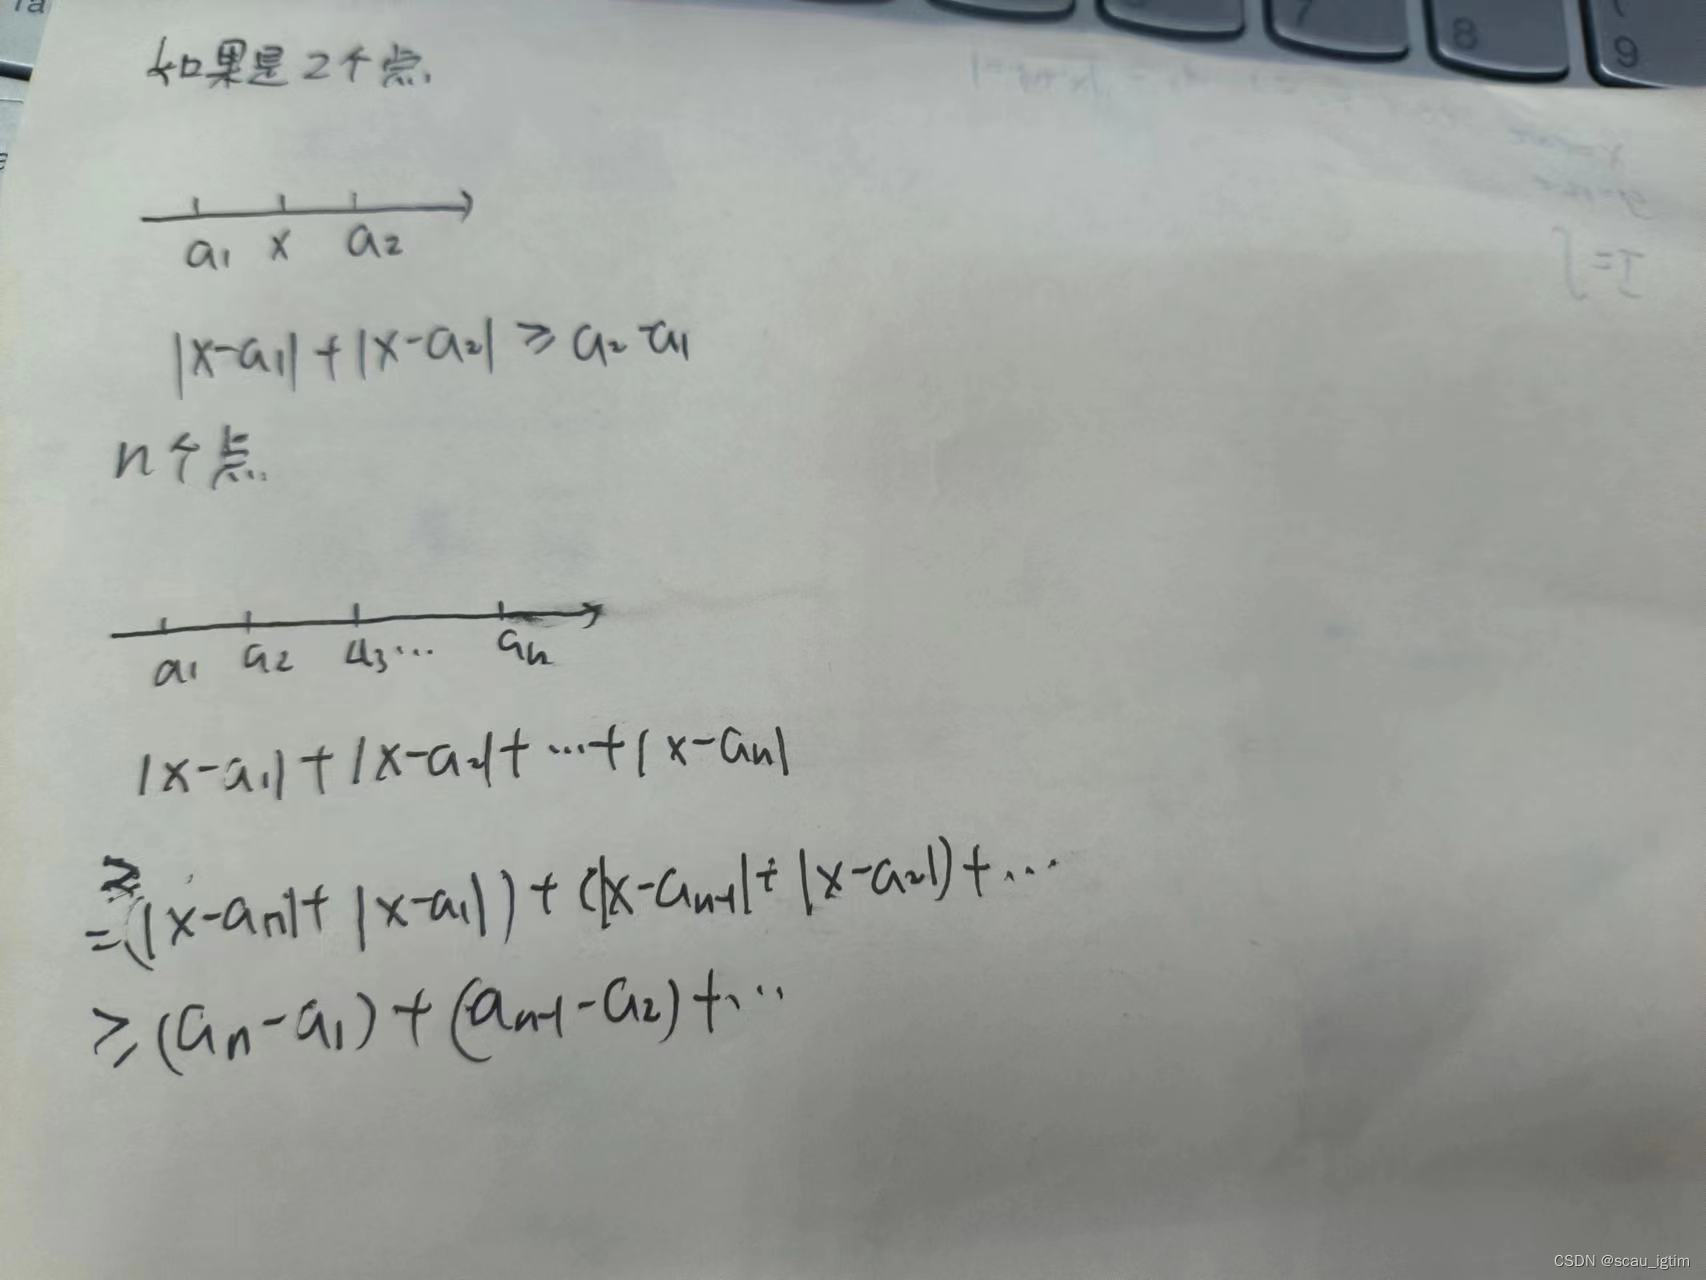 如果是2个点
a1 x a2
|x-a1|+|x-a2|≥a2-a1
n个点
a1 a2 a3... an
|x-a1|+|x-a2|+...+|x-an|
=(|x-an|+|x-a1|)+(|x-an-1|+|x-a2|)+...
≥(an-a1)+(an-1-a2)+...
7
8
9
CSDN @scau_igtim